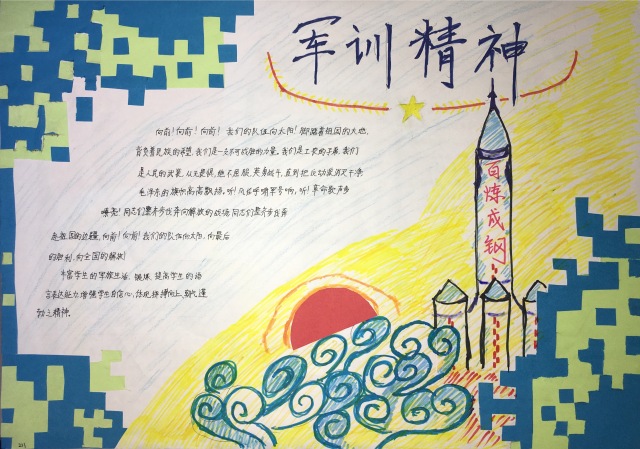 军训精神
向前！向前！向前！我们的队伍向太阳！脚踏着祖国的大地，
背负着民族的希望，我们是一支不可战胜的力量。我们是工农的子弟，我们
是人民的武装，从无畏惧，绝不屈服，英勇战斗，直到把反动派消灭干净
毛泽东的旗帜高高飘扬。听！风在呼啸军号响，听！革命歌声多
嘹亮！同志们整齐步伐奔向解放的战场，同志们整齐步伐奔
赴祖国的边疆，向前！向前！我们的队伍向太阳，向最后
的胜利，向全国的解放！
丰富学生的军族生活，锻炼、提高学生的语
言表达能力，增强学生自信心，体现拼搏向上
之精神。
百炼成钢